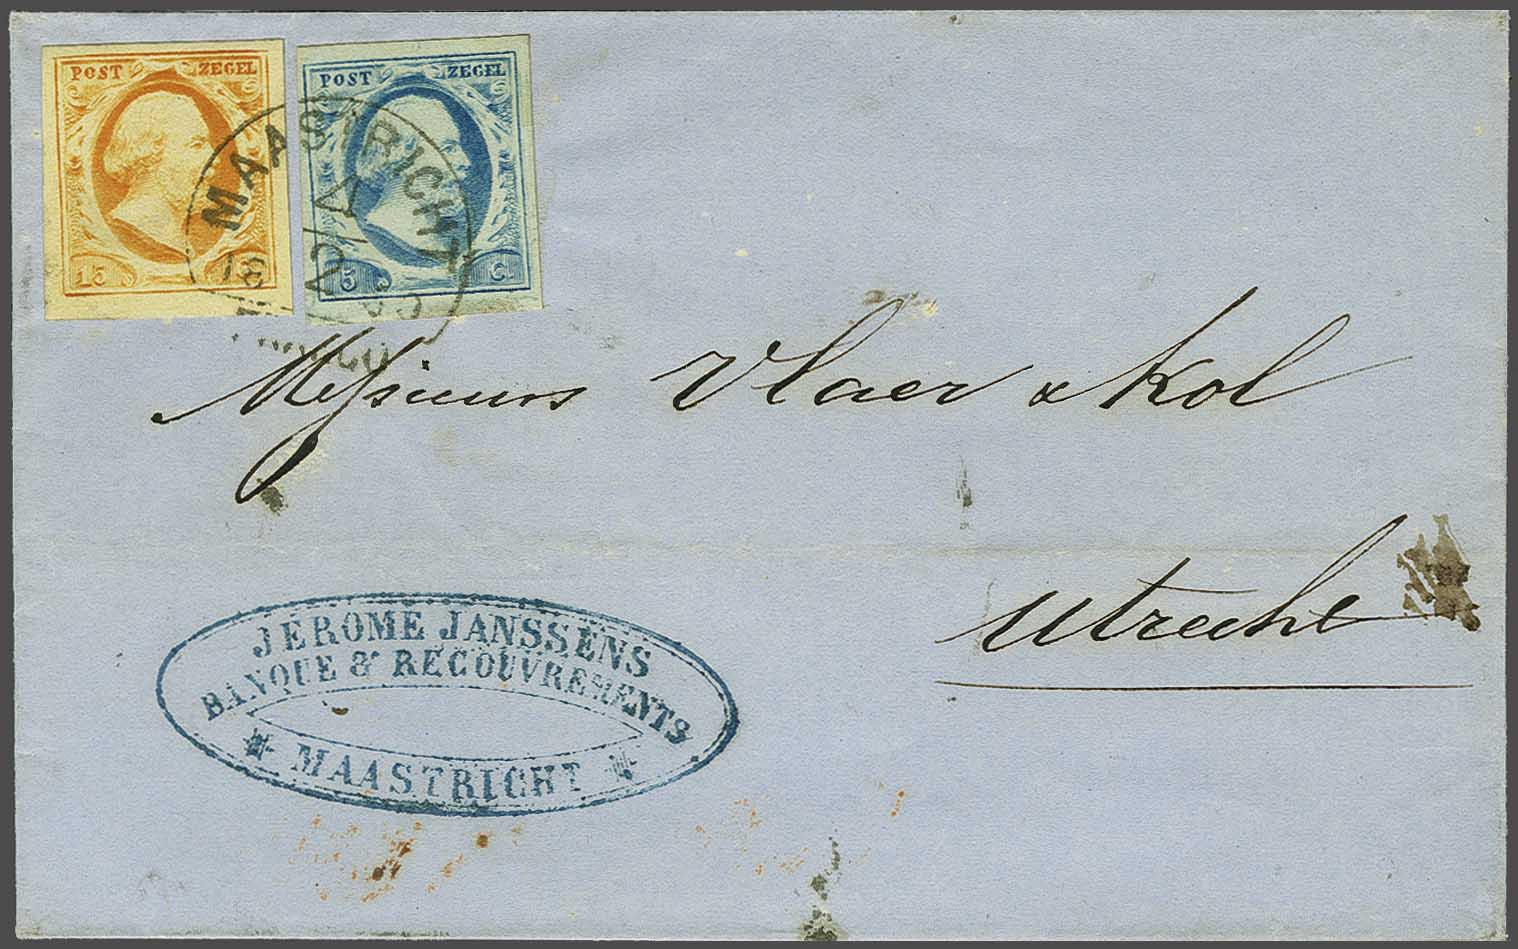 POST ZEGEL
15
POST ZEGEL
5 C.
MAASTRICHT
18
FRANCO
Messieurs Vlaer & Kol
Utrecht
JEROME JANSSENS
BANQUE & RECOUVREMENTS
MAASTRICHT